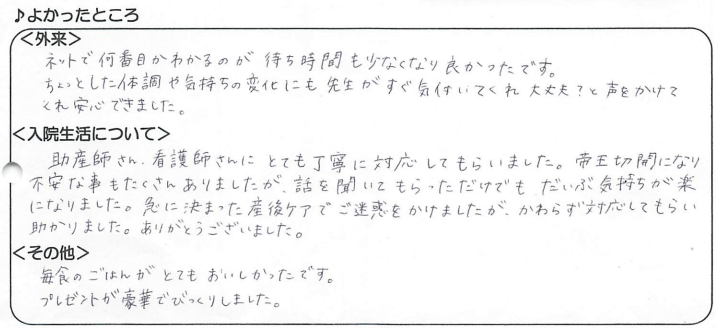 ♪よかったところ
<外来>
ネットで何番目かわかるのが 待ち時間も少なくなり良かったです。
ちょっとした体調や気持ちの変化にも先生がすぐ気付いてくれ 大丈夫?と声をかけて
くれ安心できました。
<入院生活について>
助産師さん、看護師さんに とても丁寧に対応してもらいました。帝王切開になり
不安な事もたくさんありましたが、話を聞いてもらっただけでも、だいぶ気持ちが楽
になりました。急に決まった産後ケアでご迷惑をかけましたが、かわらず対応してもらい
助かりました。ありがとうございました。
<その他>
毎食のごはんがとてもおいしかったです。
プレゼントが豪華でびっくりしました。